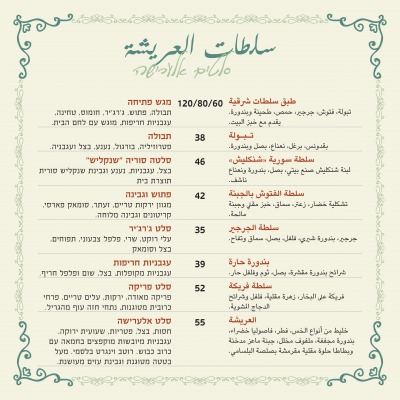 سلطات العريشة
סלטים אלערישה
طبق سلطات شرقية 120/80/60 מגש פתיחה
تبولة، فتوش، جرجير، حمص، طحينة وبندورة. תבולה, פתוש, ג'רג'יר, חומוס, טחינה,
يقدم مع خبز البيت. עגבניות חריפות, מוגש עם לחם הבית.
تـبـولة 38 תבולה
بقدونس، برغل، نعناع، بصل وبندورة. פטרוזיליה, בורגול, נענע, בצל ועגבניה.
سلطة سورية «شنكليش» 46 סלטה סוריה "שנקליש"
لبنة شنكليش صنع بيتي، بصل، بندورة ونعناع בצל, עגבניות, נענע וגבינת שנקליש סורית
ناشف. תוצרת בית
سلطة الفتوش بالجبنة 42 פתוש וגבינה
تشكيلة خضار، زعتر، سماق، خبز مقلي وجبنة מגוון ירקות טריים, זעתר, סומאק פארסי,
مالحة. קריטונים וגבינה מלוחה.
سلطة الجرجير 35 סלט ג'רג'יר
جرجير، بندورة شيري، فلفل، بصل، سماق وتفاح. עלי רוקט, שרי, פלפל צבעוני, תפוחים,
בצל וסומאק
بندورة حارة 39 עגבניות חריפות
شرائح بندورة مقشرة، بصل، ثوم وفلفل حار. עגבניות מקולפות, בצל, שום ופלפל חריף.
سلطة فريكة 52 סלט פריקה
فريكة على البخار، زهرة مقلية، فلفل وشرائح פריקה מאודה, ירקות, עלים טריים, פרחי
الدجاج المشوية. כרובית מטוגנות, נתחי חזה עוף מהגריל.
العريشة 55 סלט אלערישה
خليط من أنواع الخس، فطر، فاصوليا خضراء، חסות, בצל, פטריות, שעועית ירוקה,
بندورة مجففة، ملفوف مخلل، جبنة ماعز مدخنة עגבניות מיובשות מוקפצים בחמאה עם
وبطاطا حلوة مقلية مقرمشة بصلصة البلسامي. כרוב כבוש, רוטב וינגרט בלסמי, מעל
בטטה מטוגנת וגבינת עזים מעושנת.